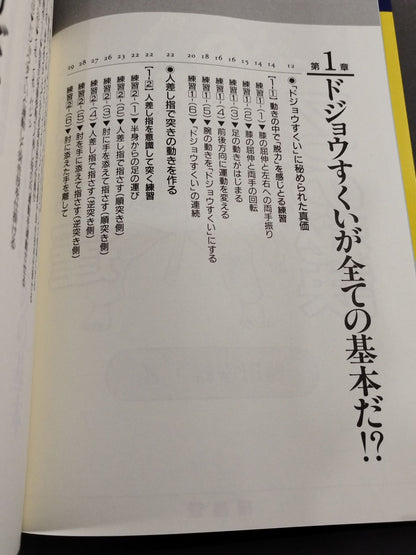 第1章 ドジョウすくいが全ての基本だ!?
●「ドジョウすくい」に秘められた真価
12
【1-1】動きの中で「脱力」を感じとる練習
14
練習1-(1)▼膝の屈伸と左右への両手振り
14
練習1-(2)▼膝の屈伸と両手の回転
15
練習1-(3)▼足の動きがはじまる
16
練習1-(4)▼前後方向に運動を変える
16
練習1-(5)▼腕の動きを、「ドジョウすくい」にする
18
練習1-(6)▼「ドジョウすくい」の連続
20
●人差し指で突きの動きを作る
22
【1-2】人差し指を意識して突く練習
22
練習2-(1)▼半身からの足の運び
22
練習2-(2)▼人差し指で指さす(順突き側)
23
練習2-(3)▼肘に手を添えて指さす(順突き側)
26
練習2-(4)▼人差し指で指さす(逆突き側)
27
練習2-(5)▼肘を手に添えて指さす(逆突き側)
28
練習2-(6)▼肘に添えた手を離して
29